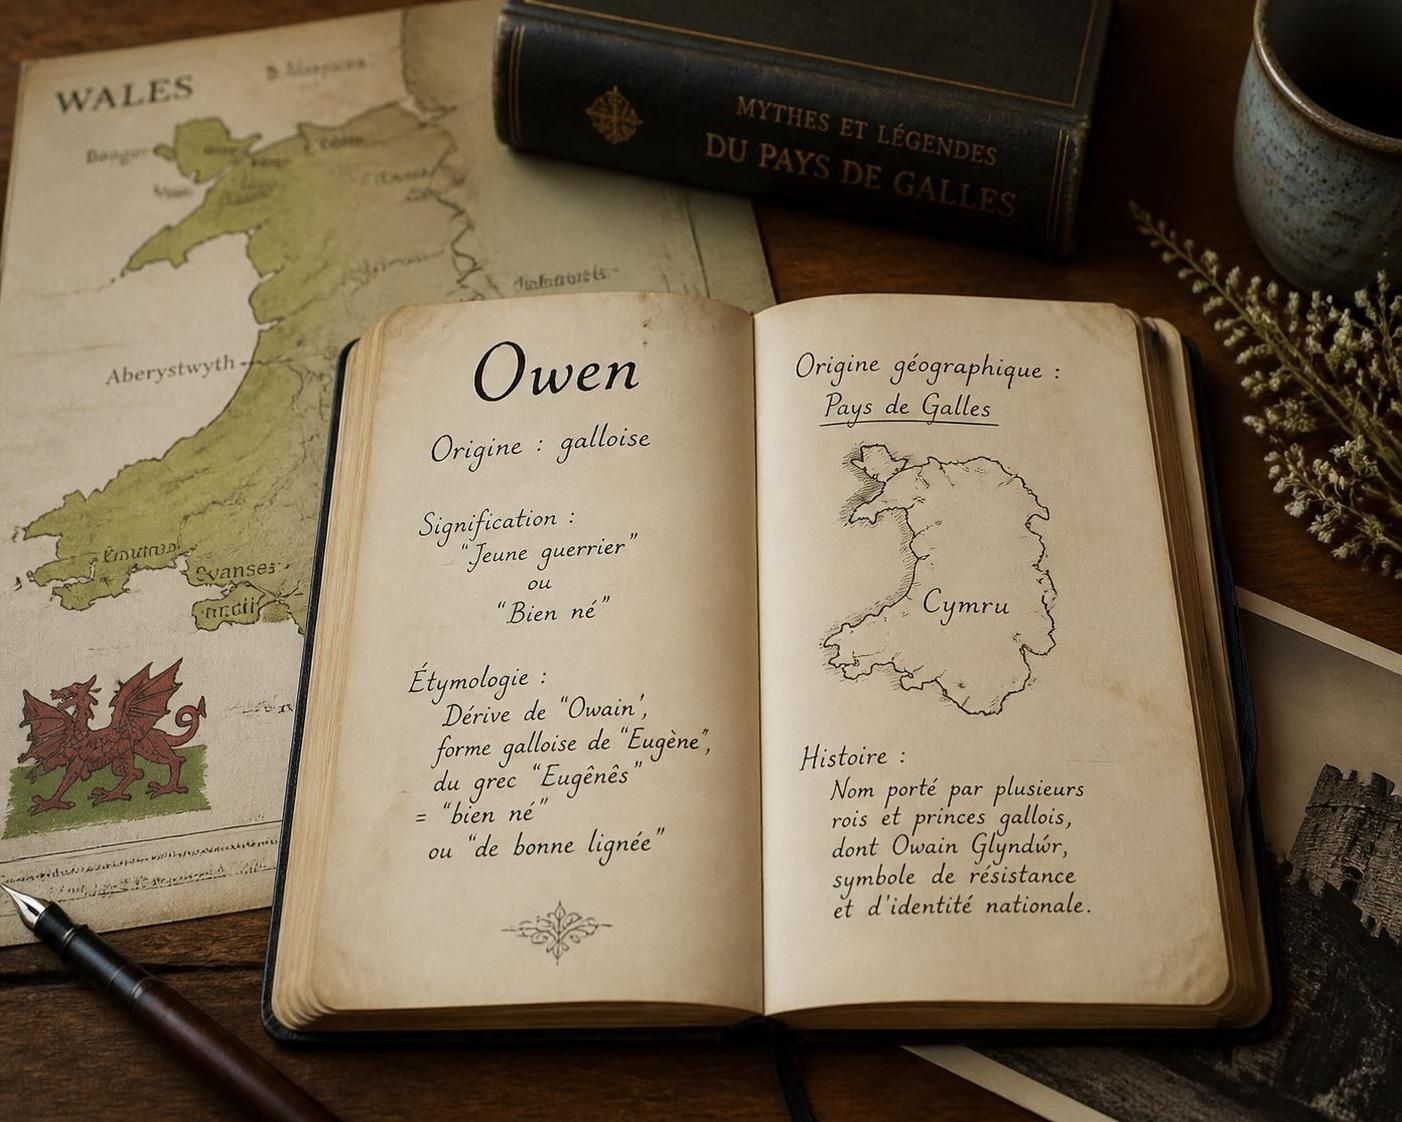 WALES
Bangor
Aberystwyth
MYTHES ET LÉGENDES
DU PAYS DE GALLES
Owen
Origine : galloise
Signification :
"Jeune guerrier"
ou
"Bien né"
Étymologie :
Dérive de "Owain',
forme galloise de "Eugène",
du grec "Eugênês"
= "bien né"
ou "de bonne lignée"
Origine géographique :
Pays de Galles
Cymru
Histoire :
Nom porté par plusieurs
rois et princes gallois,
dont Owain Glyndŵr,
symbole de résistance
et d'identité nationale.